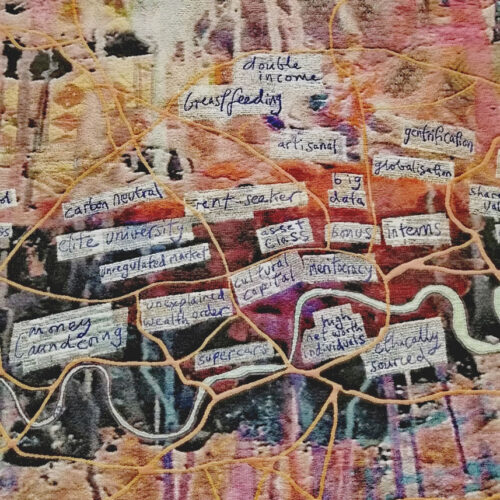 double
income
breastfeeding
artisanal
gentrification
globalisation
carbon neutral
rent-seeker
big
data
elite university
asset
class
bonus
interns
unregulated market
cultural
capital
meritocracy
unexplained
wealth order
money
laundering
high
net worth
individuals
supercars
ethically
sourced